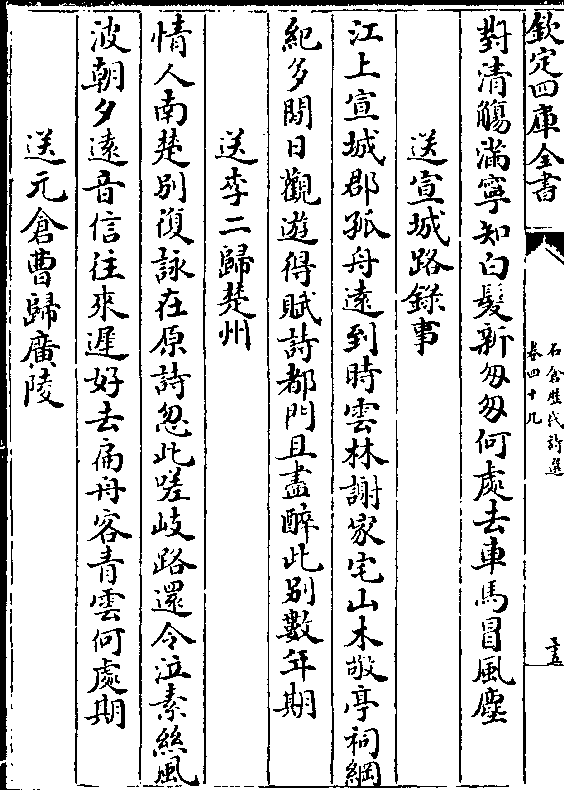 欽定四庫全書
石倉歷代詩選
卷四十九
對清觴滿寧知白髮新匆匆何處去車馬冒風塵
送宣城路錄事
江上宣城郡孤舟遠到時雲林謝家宅山木敬亭祠綱
紀多閒日觀遊得賦詩都門且盡醉此別數年期
送李二歸楚州
情人南楚別復詠在原詩忽此嗟岐路還令泣素絲風
波朝夕遠音信往來遲好去扁舟客青雲何處期
送元倉曹歸廣陵